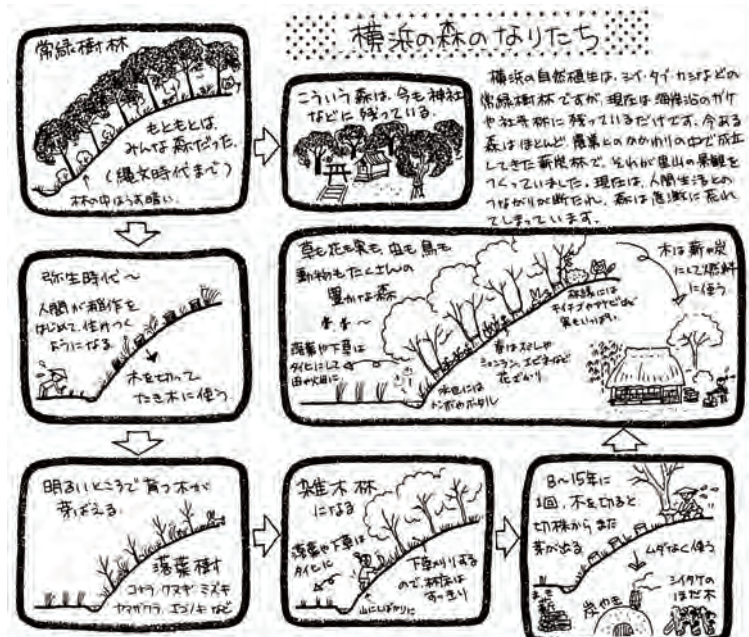 横浜の森のなりたち
横浜の自然植生は、シイ・タイ・カシなどの
常緑樹林ですが、現在は海岸沿のガケ
や社寺林に残っているだけです。今ある
森はほとんど、農業とのかかわりの中で成立
してきた薪炭林で、それが里山の景観を
つくっていました。現在は、人間生活との
つながりが断たれ、森は急激に荒れ
てしまっています。
常緑樹林
もともとは、
みんな森だった。
(縄文時代まで)
林の中はうす暗い
こういう森は、今も神社
などに残っている。
弥生時代〜
人間が稲作を
はじめて、住みつく
ようになる
木を切って
たき木に使う
明るいところで育つ木が
芽ばえる
落葉樹
コナラ、クヌギ、ミズキ
ヤマザクラ、エゴノキなど
雑木林
になる
落葉や下草は
タイヒに
下草刈りする
ので、林床は
すっきり
山にしばかりに
8〜15年に
1回、木を切ると
切株からまた
芽が出る
ムダなく使う
まき
炭やき
シイタケの
ほだ木
草も花も実も、虫も鳥も
動物もたくさんの
豊かな森
落葉や下草は
タイヒにして
田や火田に
水辺には
トンボやホタル
春はスミレや
シュンラン、エビネなど
花ざかり
林縁には
キイチゴやアケビなど
実もいっぱい
木は薪や炭
にして燃料
に使う